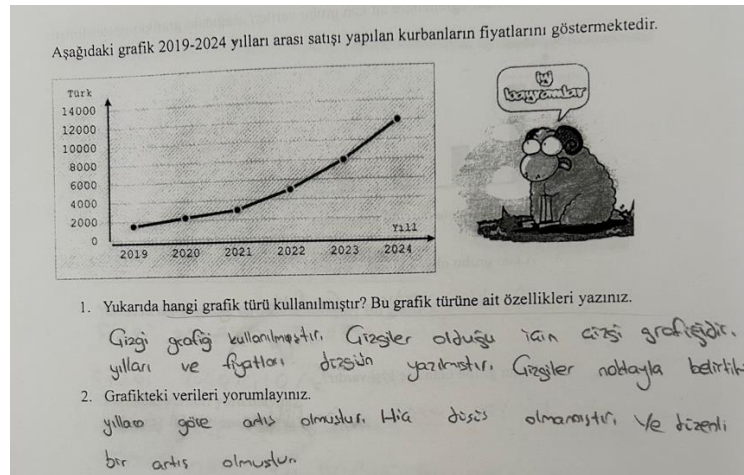 Aşağıdaki grafik 2019-2024 yılları arası satışı yapılan kurbanların fiyatlarını göstermektedir.
Türk
14000
12000
10000
8000
6000
4000
2000
0
Yıll
2019 2020 2021 2022 2023 2024
iyi
bayramlar
1. Yukarıda hangi grafik türü kullanılmıştır? Bu grafik türüne ait özellikleri yazınız.
Çizgi grafiği kullanılmıştır. Çizgiler olduğu için çizgi grafiğidir.
yılları ve fiyatları düzgün yazılmıştır. Çizgiler noktayla belirtik
2. Grafikteki verileri yorumlayınız.
yıllara göre artış olmuştur. Hiç düşüş olmamıştır. Ve düzenli
bir artış olmuştur.